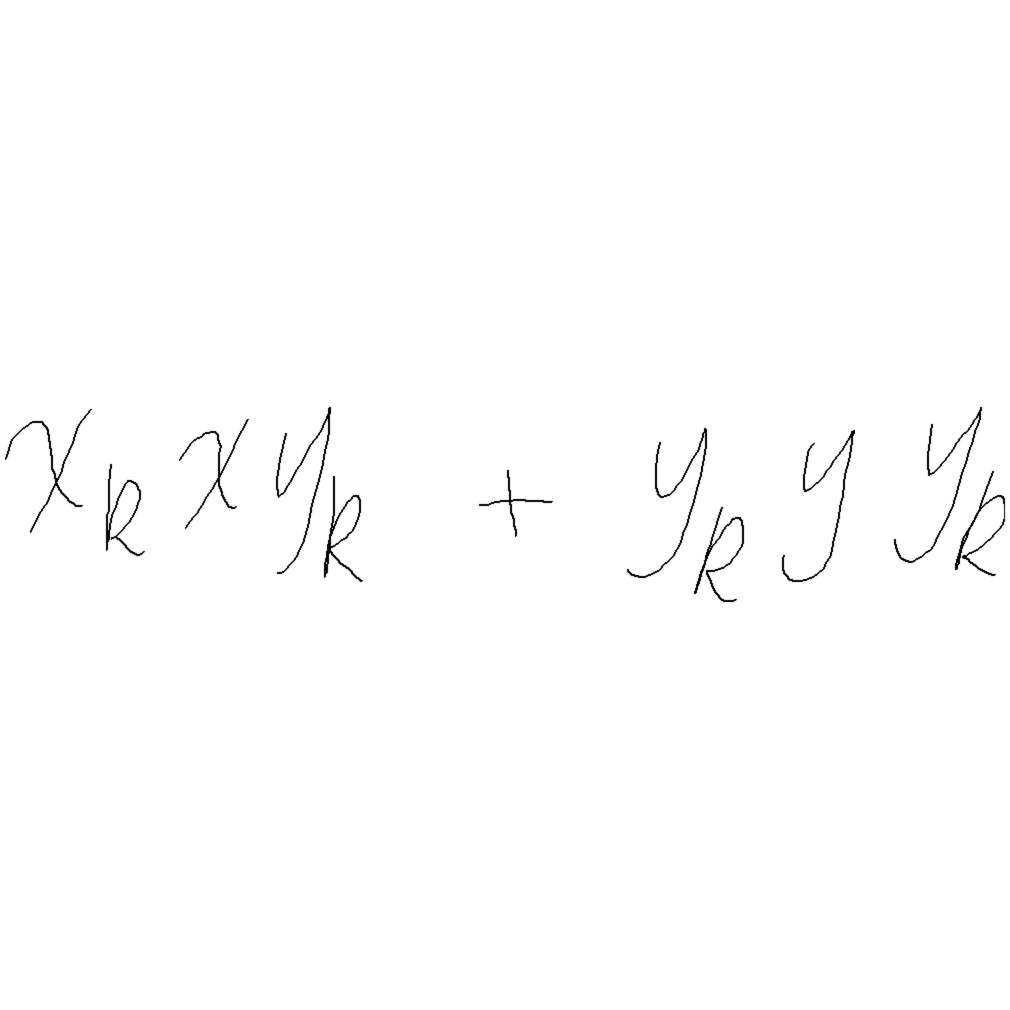 x_k x y_k + y_k y y_k